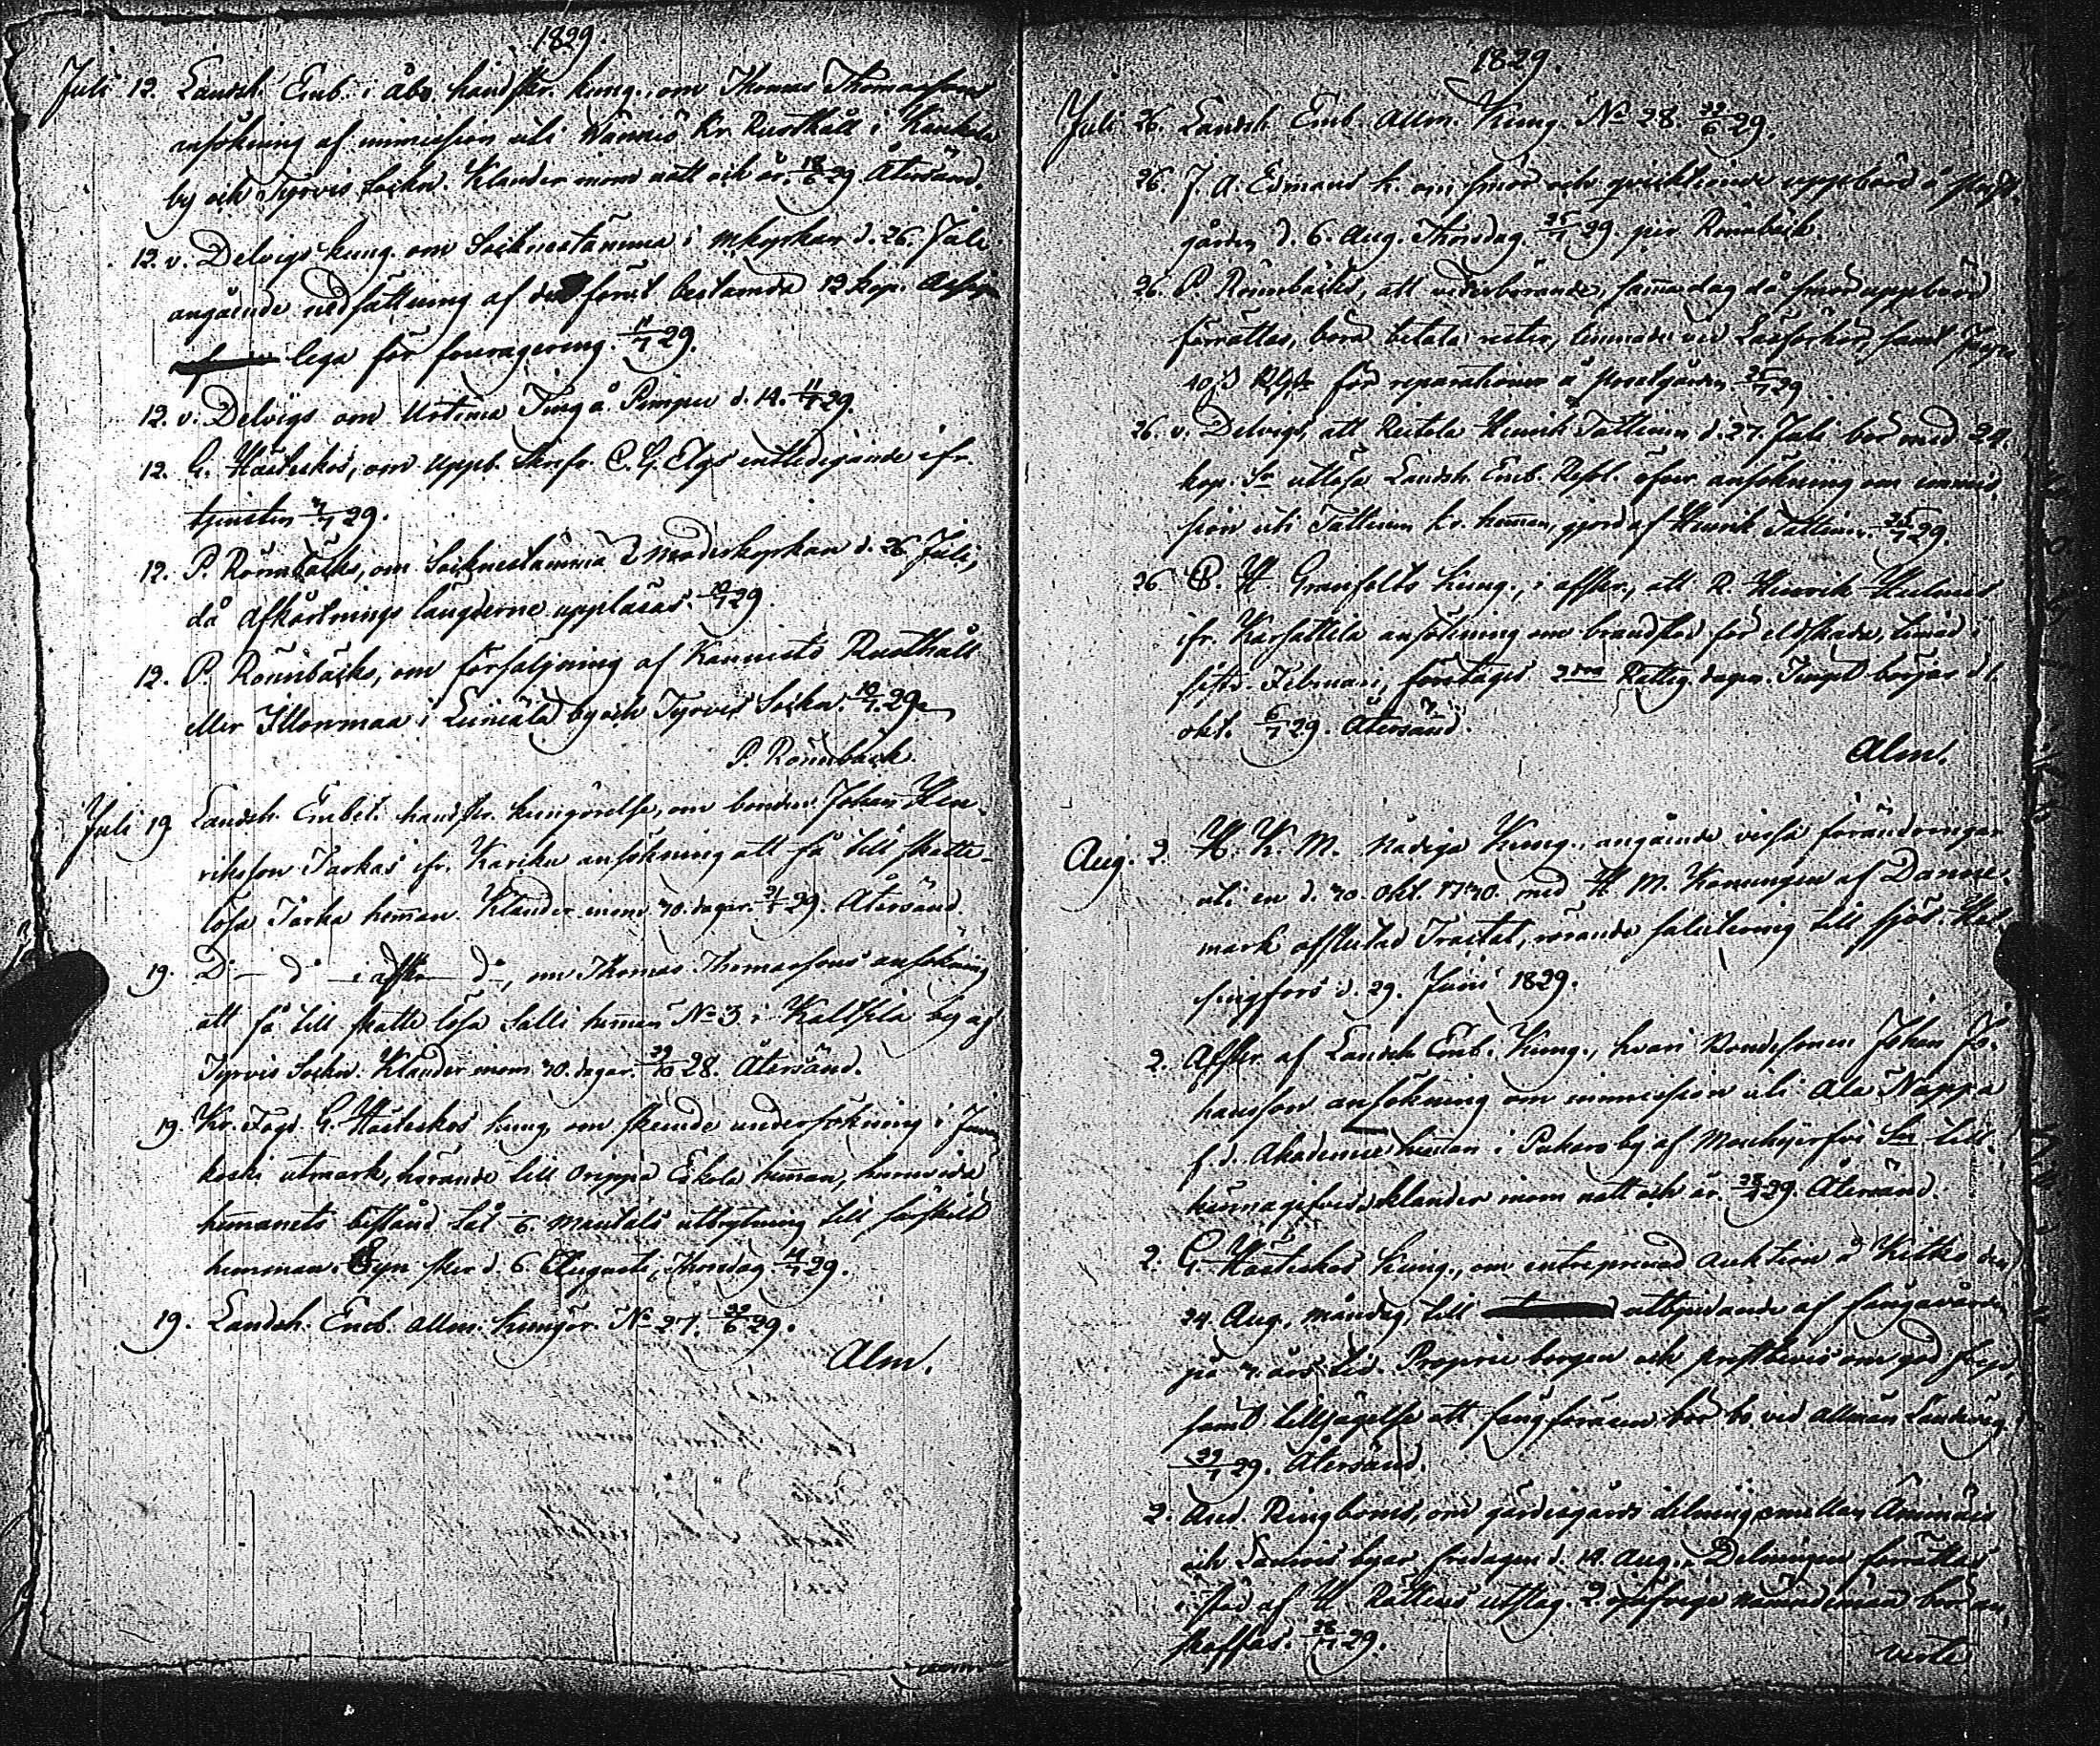 1829.
Juli 12. Landsh. Emb. i Åbo handskr. kung. om Thomas Thomassons
ansökning af immission uti Wännis Kr. Rusthåll i
by och Tyrvis Sockn. Klander inom natt och år. 18/6 29. Återsänd.
12. v. Delvigs kung. om Socknestämma i mkyrkan d. 26. Juli
angående nedsättning af den först bestämda 12 kop.
lega för fouragering. 11/7 29.
12. v. Delvigs om Urtima Ting å Pimpu d. 14. 11/7 29.
12. G. Hästeskos, om Uppb. Skrifv. C. G. Elgs entledigande ifr.
tjensten 7/7 29.
12. P. Rönnbäcks, om Socknestämma i Moderkyrkan d. 26 Juli,
då afkortnings längderne uppläsas. 10/7 29
12. P. Rönnbäcks, om försäljning af Kannisto Rusthåll
eller Illonmaa i by och Tyrvis Sockn. 10/7 29
P. Rönnbäck.
Juli 19 Landsh. Embet. handskr. kungörelse, om bonden Johan Hen-
riksson Tarkas ifr. Kariku ansökning att få till skatte
lösa Tarka hemman. Klander inom 30. dagar. 29. Återsänd.
19. D:o d:o i afskr. d:o, om Thomas Thomassons ansökning
att få till skatte lösa Salli hemman No 3 i Kaltsila by af
Tyrvis Sockn. Klander inom 30. dagar. 28. Återsänd.
19. Kr. Fogd. G. Hästeskos kung. om skeende undersökning i
koski utmark, hörande till Orippa Eskola hemman, huruvida
hemmanets bestånd tål 1/6 mantals utbrytning till särskilt
hemman. Syn sker d. 6 Augusti, Thorsdag 14/7 29.
19. Landsh. Emb. allm. kungör. No 27. 22/6 29.
Alm.
1829.
Juli 26. Landsh. Emb. Allm. Kung. No 28. 29/6 29.
26. J. A. Edmans k. om smör och qvicktionde uppbörd å prest-
gården d. 6. Aug. Thorsdag. 25/7 29 gm Rönnbäck.
26. P. Rönnbäcks, att vederbörande, samma dag då smöruppbörd
förrättas, böra betala rester, lemnade vid Läsförhör, samt
40 ß RGds för reparationer å prestgården 25/7 29
26. v. Delvigs, att Reitola Henrik Tattinen d. 27. Juli bör med 24.
kop. Sr utlösa Landsh. Emb. Resol. öfver ansökning om immis-
sion uti Tattinen kr. heman, gjord af Henrik Tattinen. 25/7 29.
26 H. Granfelts kung., i afskr., att R. Henrik
ifr. Karsattila ansökning om brandstod för eldskada, timad i
sistl. Februari, företages 2dra Rätteg. dagen. Tinget börjar d. 1
Okt. 6/7 29. Återsänd.
Alm.
Aug. 2. H. K. M. Nådiga Kung., angående vissa förändringar
uti en d. 30 Okt. 1730. med H. M. Konungen af Danne-
mark afslutad Tractat, rörande salutering till sjös. Hel-
singfors d. 29. Juni 1829.
2. Afskr. af Landsh. Emb. Kung., hvari Bondesonen Johan Jo-
hansson ansökning om immission uti Ala Nappa
f. d. Akademie heman i by af Sn till-
kännagifves. Klander inom natt och år. 29. Återsänd.
2. G. Hästeskos Kung., om entreprenad Auktion å den
24 Aug., måndag, till utbjudande af fångavården
på 3. års tid. Proprie borgen och prestbevis om god
samt tillsägelse att fångföraren bör bo vid allmän Landsväg.
29/7 29. Återsänd.
2. And. Ringboms, om gärdesgårds delning emellan
och byar fredagen d. 14 Aug. Delningen förrättas
i stöd af H. Rättens Utslag. 2 ojäfvige nämndemän bör an-
skaffas. 29.
verte